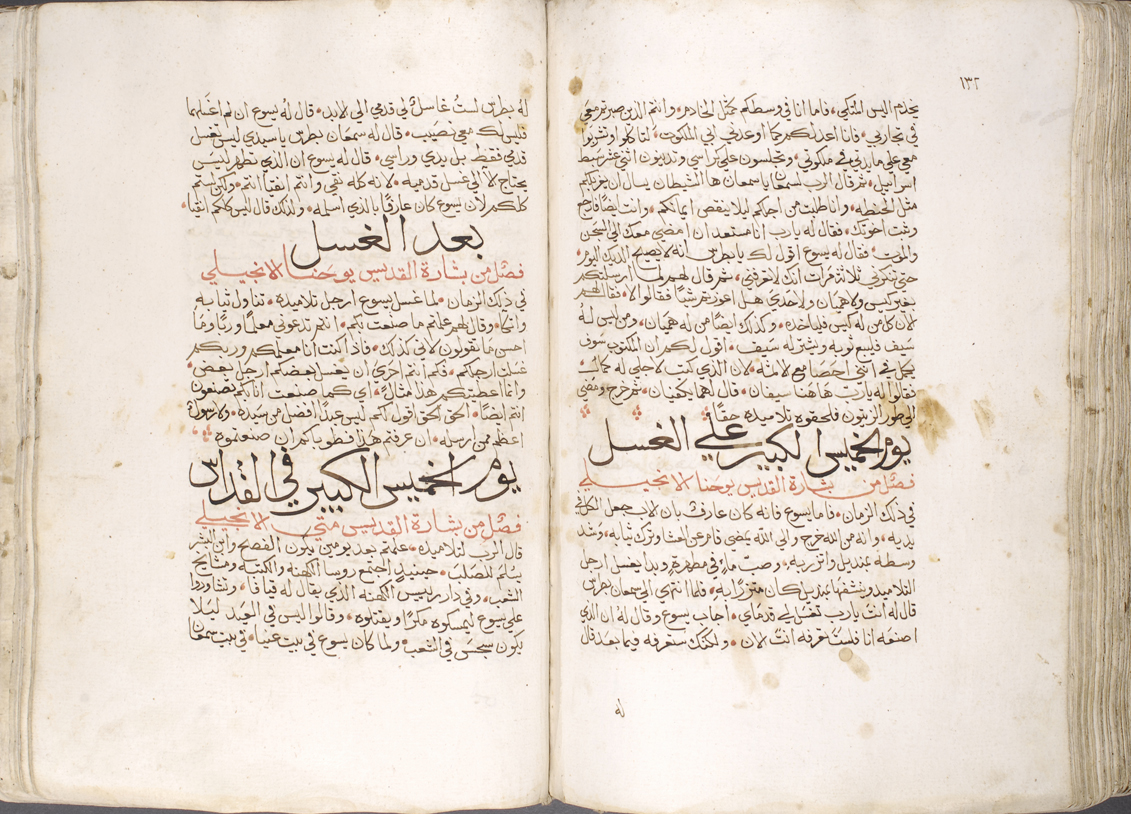 ١٣٢
يخدم اليس المتكي، فاما انا في وسطكم كمثل الخادم، وانتم الذين صبرتم معي
في تجاربي، فانا اعد لكم كما اوعدني ابي الملكوت، لتاكلوا وتشربوا
معي علي مايدتي في ملكوتي، وتجلسون علي كراسي وتدينون اثني عشر سبط
اسراييل، ثم قال الرب لسمعان يا سمعان ها الشيطان يسال ان يغربلكم
مثل الحنطه، وانا طلبت من اجلكم ليلا ينقص ايمانكم، وانت ايضا فارجع
وثبت اخوتك، فقال له يارب انا مستعد ان امضي معك الي السجن
والموت، فقال له يسوع اقول لك يا بطرس انه لا يصيح الديك اليوم
حتي تنكرني ثلاثة مرات انك لا تعرفني، ثم قال لهم لما ارسلتكم
بغير كيس ولا هميان ولا حدي هل اعوزتم شيا فقالوا لا، فقال لهم
لان كل من له كيس فلياخذه، وكذلك ايضا من له هميان، ومن ليس له
سيف فليبع ثوبه ويشتر له سيف، اقول لكم ان المكتوب سوف
يكمل في اني احصا مع الاثمه، لان الذي كتب لاجلي له كمال
فقالوا له يارب هاهنا سيفان، قال لهما يكفيان، ثم خرج ومضي
الي طور الزيتون فلحقوه تلاميذه حقا
يوم الخميس الكبير علي الغسل
فصل من بشارة القديس يوحنا الانجيلي
في ذلك الزمان، فاما يسوع فانه كان عارف بان الاب جعل الكل في
يديه، وانه من الله خرج والي الله يمضي قام عن العشا وترك ثيابه، وشد
وسطه بمنديل واتزر به، وصب ماء في مطهرة وبدا يغسل ارجل
التلاميذ وينشفها بمنديل كان متزرا به، فلما انتهي الي سمعان بطرس
قال له انت يارب تغسل لي قدماي، اجاب يسوع وقال له ان الذي
اصنعه انا فلست تعرفه انت الان، ولكنك ستعرفه فيما بعد قال
له
له بطرس لست غاسل لي قدمي الي الابد، قال له يسوع ان لم اغسلهما
فليس لك معي نصيب، قال له سمعان بطرس يا سيدي ليس تغسل
قدمي فقط بل يدي وراسي، قال له يسوع ان الذي تطهر ليس
يحتاج الا الي غسل قدميه، لانه كله نقي وانتم انقيا انتم، ولكن لستم
كلكم لان يسوع كان عارفا بالذي اسلمه، ولذلك قال ليس كلكم انقيا،
بعد الغسل
فصل من بشارة القديس يوحنا الانجيلي
في ذلك الزمان، لما غسل يسوع ارجل تلاميذه، تناول ثيابه
واتكا، وقال لهم علمتم ما صنعت بكم، انتم تدعوني معلما وربا وما
احسن ما تقولون لاني كذلك، فاذا كنت انا معلمكم وربكم
غسلت ارجلكم، فكم انتم احري ان يغسل بعضكم ارجل بعض،
وانما اعطيتكم هذا مثالا، اي كما صنعت انا بكم تصنعون
انتم ايضا، الحق الحق اقول لكم ليس عبد افضل من سيده، ولا رسولا
اعظم ممن ارسله، ان عرفتم هذا فطوباكم ان صنعتموه
يوم الخميس الكبير في القداس
فصل من بشارة القديس متي الانجيلي
قال الرب لتلاميذه، علمتم بعد يومين يكون الفصح وابن البشر
يسلم للصلب، حينيذ اجتمع روسا الكهنه والكتبه ومشايخ
الشعب، وفي دار رييس الكهنه الذي يقال له قيافا، وتشاوروا
علي يسوع ليمسكوه مكرا ويقتلوه، وقالوا ليس في العيد ليلا
يكون سجس في الشعب، ولما كان يسوع في بيت عنيا، في بيت سمعان